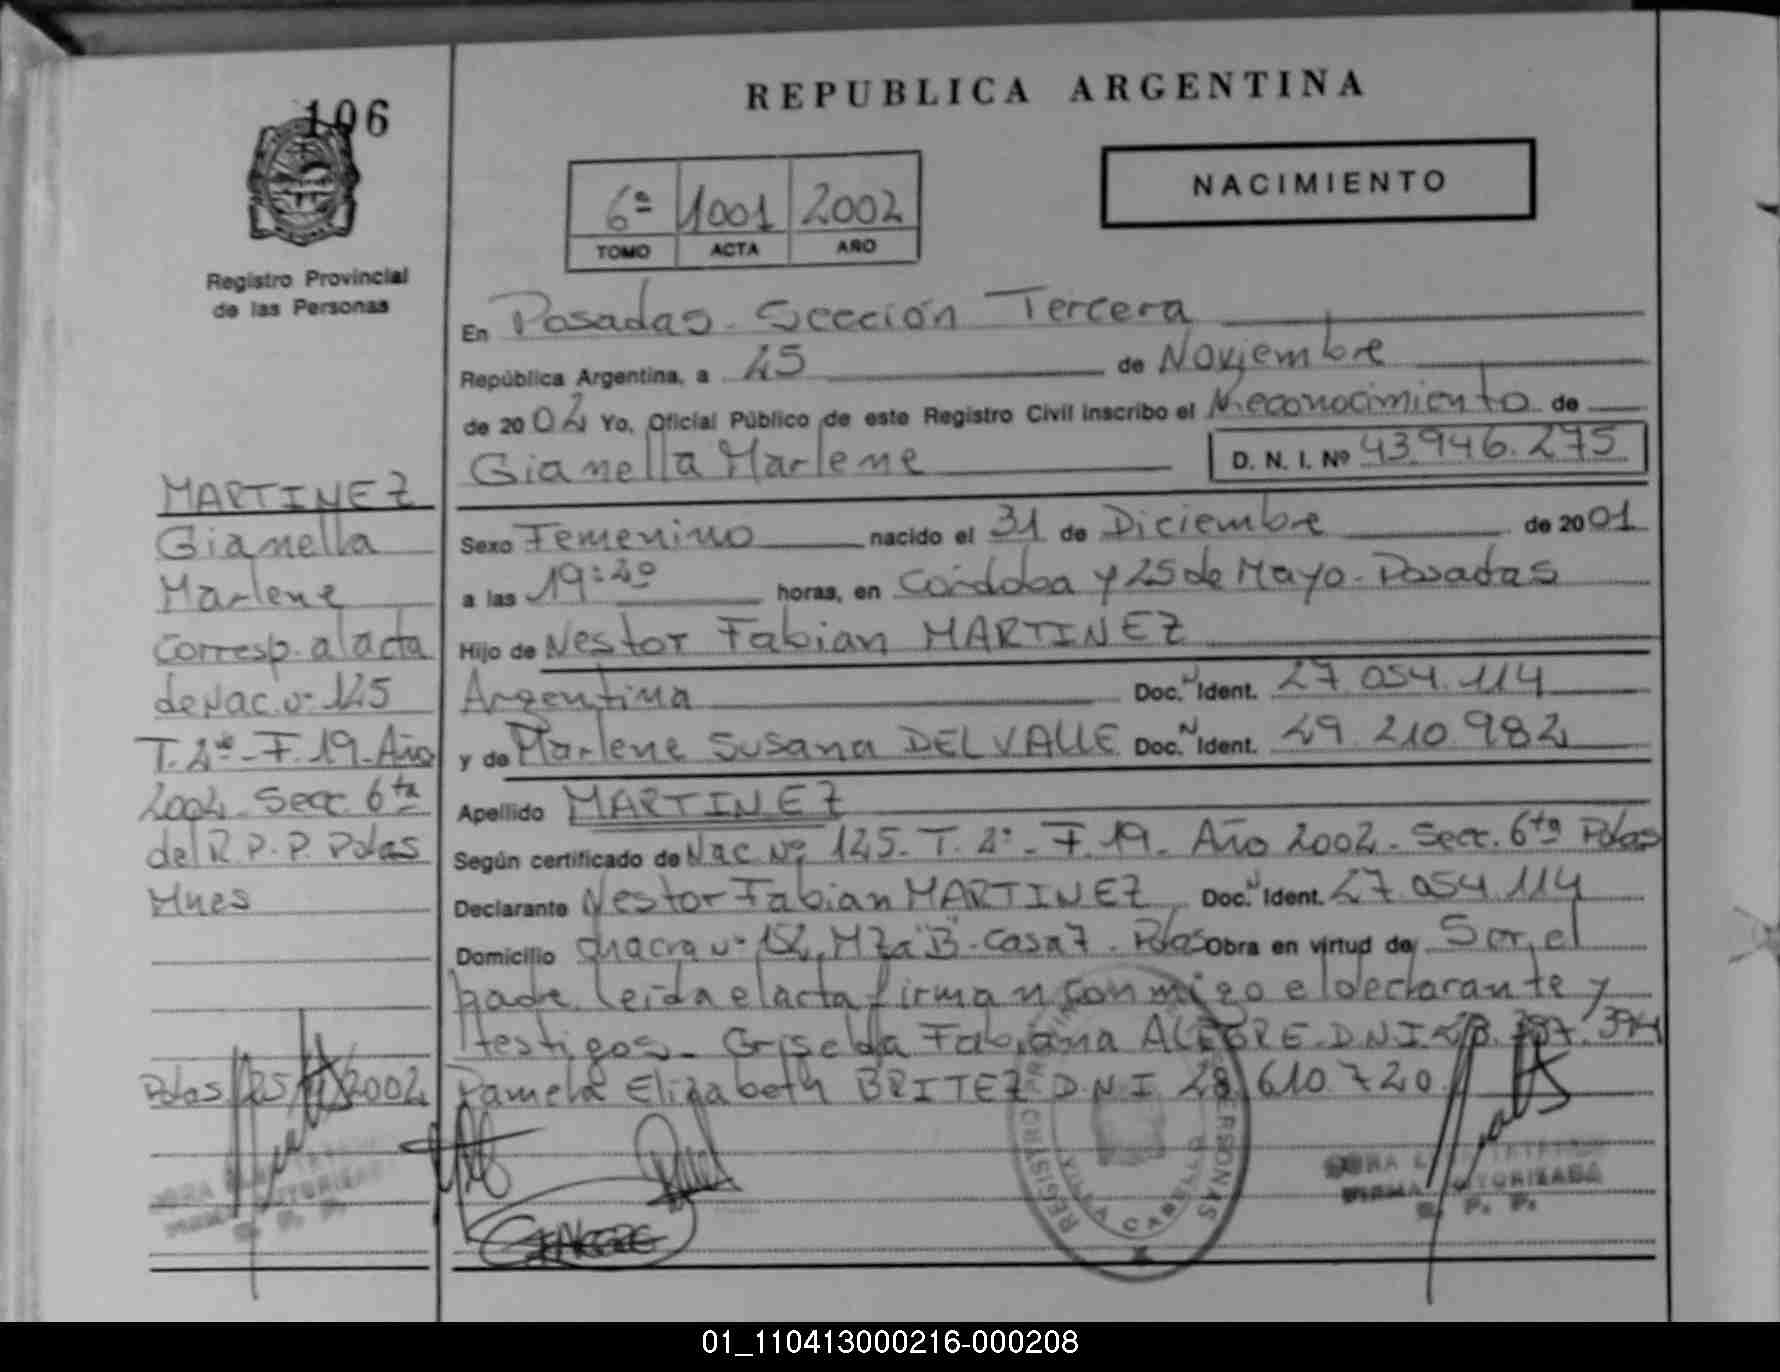 106
REPUBLICA ARGENTINA
NACIMIENTO
6º 1001 2002
TOMO ACTA AÑO
Registro Provincial
de las Personas
En Posadas - Sección Tercera
República Argentina, a 25 de Noviembre
de 2002 Yo, Oficial Público de este Registro Civil inscribo el Reconocimiento de
Gianella Marlene D. N. I. Nº 43.946.275
Sexo Femenino nacido el 31 de Diciembre de 2001
a las 19:20 horas, en Córdoba y 25 de Mayo - Posadas
Hijo de Nestor Fabian MARTINEZ
Argentina Doc. N Ident. 27.054.114
y de Marlene Susana DELVALLE Doc. N Ident. 29.210.982
Apellido MARTINEZ
Según certificado de Nac. Nº 125. T. 2º - F. 19 - Año 2002 - Secc. 6ta Pdas
Declarante Nestor Fabian MARTINEZ Doc. N Ident. 27.054.114
Domicilio chacra nº 152, Mza "B" - Casa 7 - Pdas Obra en virtud de Ser el
padre. leída el acta firman conmigo el declarante y
testigos - Griselda Fabiana ALEGRE D.N.I.
Pamela Elizabeth BRITEZ D.N.I. 28.610.720
MARTINEZ
Gianella
Marlene
Corresp. al acta
de Nac. nº 125
T. 2º - F. 19 - Año
2002 - Secc. 6ta
del R.P.P. Pdas
Mnes
Pdas 25/11/2002
REGISTRO PROVINCIAL PERSONAS
FIRMA AUTORIZADA
R. P. P.
FIRMA AUTORIZADA
R. P. P.
01_110413000216-000208